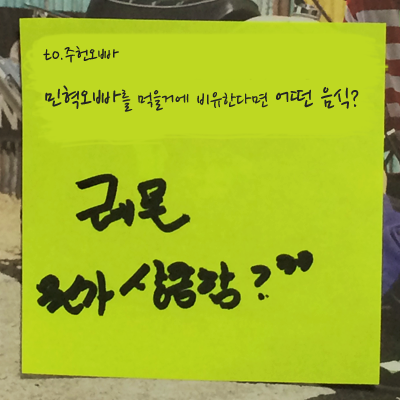 to.주헌오빠
민혁오빠를 먹을거에 비유한다면 어떤 음식?
레몬
뭔가 상큼함?"